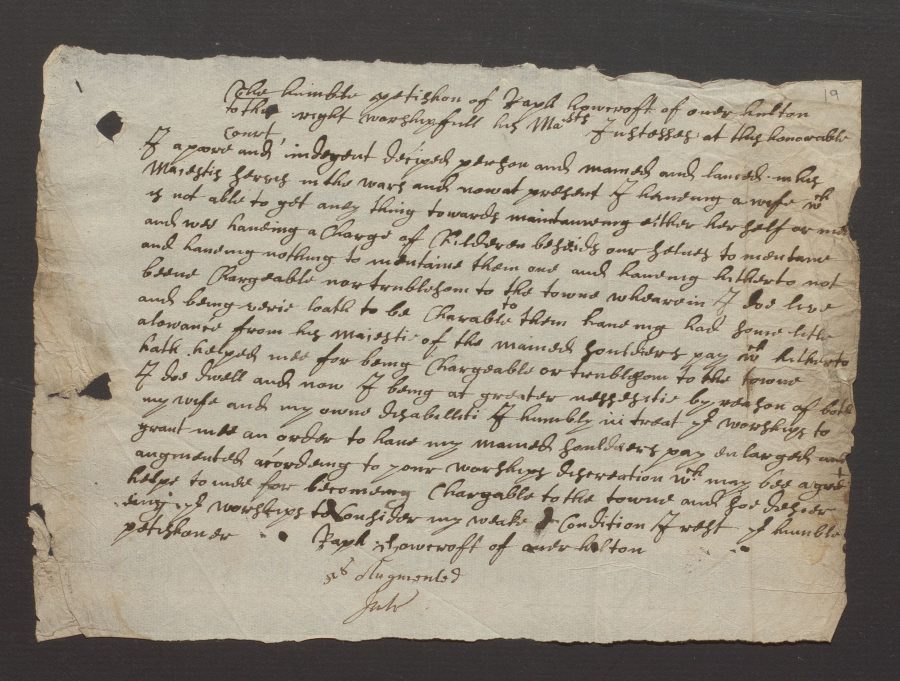 19
The humble petishon of Raph howcroft of over hulton
to the right worshipfull his Masts Justesses at this honorable
Court
I a poore and indegent deciped person and mamed and lanced in his
Majestis servis in the wars and now at present I haveing a wife wch
is not able to get aney thing towards maintaineing either her self or mee
and wee haveing a Charge of Children besids our selves to mentaine
and haveing nothing to mentaine them one and haveing hitherto not
beene Chargeable nor trublesom to the towne whearein I doe live
and being verie loath to be Charable to them haveing had some litle
alowance from his Majestie of the mamed souldiers pay wch hitherto
hath helped mee for being Chargeable or trublsom to the towne
I doe dwell and now I being at greater nessestie by reason of both
my wife and my owne disabilliti I humbly in treat yr worships to
grant mee an order to have my mamed souldiers pay enlarged and
augmented acordeing to your worships discreation wch may bee a gret
helpe to mee for becomeing Chargable to the towne and soe desier
eing yr worships to Consider my weake Condition I rest yr humble
petishoner Raph Howcroft of over hulton
Augmented